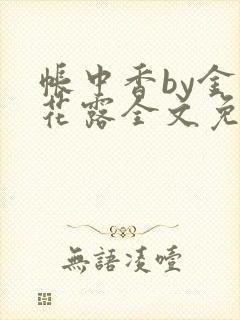 帳中香by金
花露全文免
無語凌噎